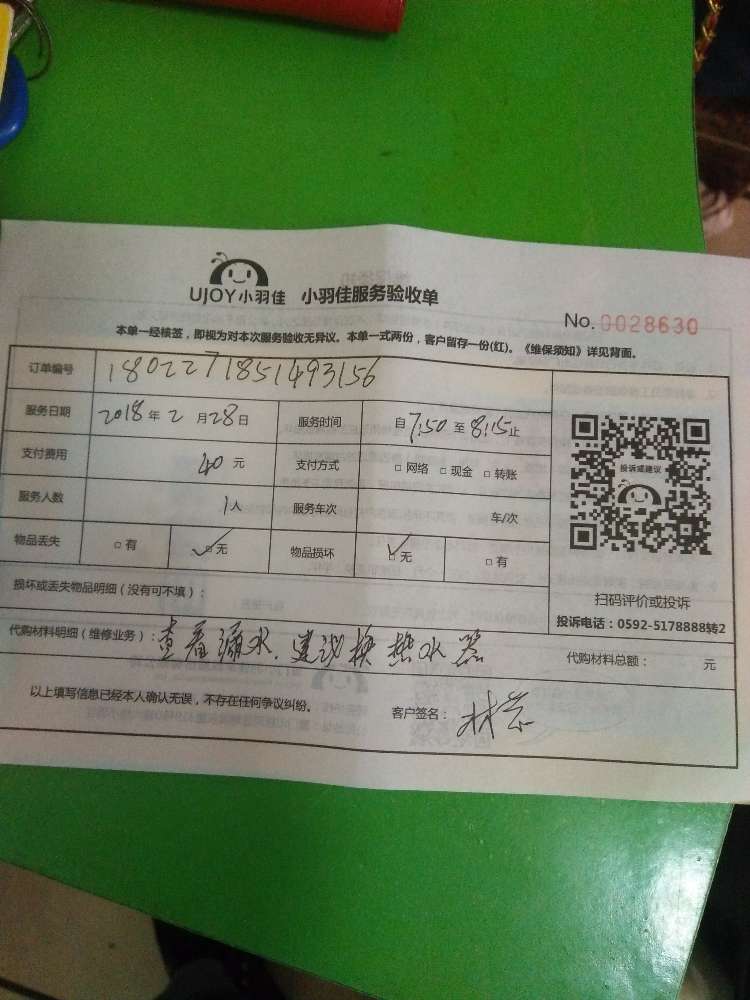 UJOY小羽佳 小羽佳服务验收单
No. 0028630
本单一经核签，即视为对本次服务验收无异议。本单一式两份，客户留存一份(红)。《维保须知》详见背面。
订单编号 1802271851493156
服务日期 2018年2月28日 服务时间 自7:50至8:15止
支付费用 40元 支付方式 □网络 □现金 □转账
服务人数 1人 服务车次 车/次
物品丢失 □有 ☑无 物品损坏 ☑无 □有
投诉或建议
扫码评价或投诉
投诉电话：0592-5178888转2
损坏或丢失物品明细（没有可不填）：
代购材料明细（维修业务）：查看漏水，建议换热水器 代购材料总额： 元
以上填写信息已经本人确认无误，不存在任何争议纠纷。 客户签名：林